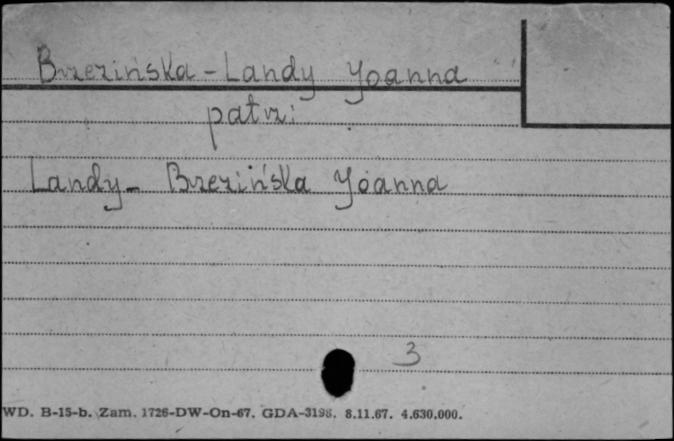 Brzezińska-Landy Joanna
patrz:
Landy- Brzezińska Joanna
3
WD. B-15-b. Zam. 1726-DW-On-67. GDA-3198. 8.11.67. 4.630.000.